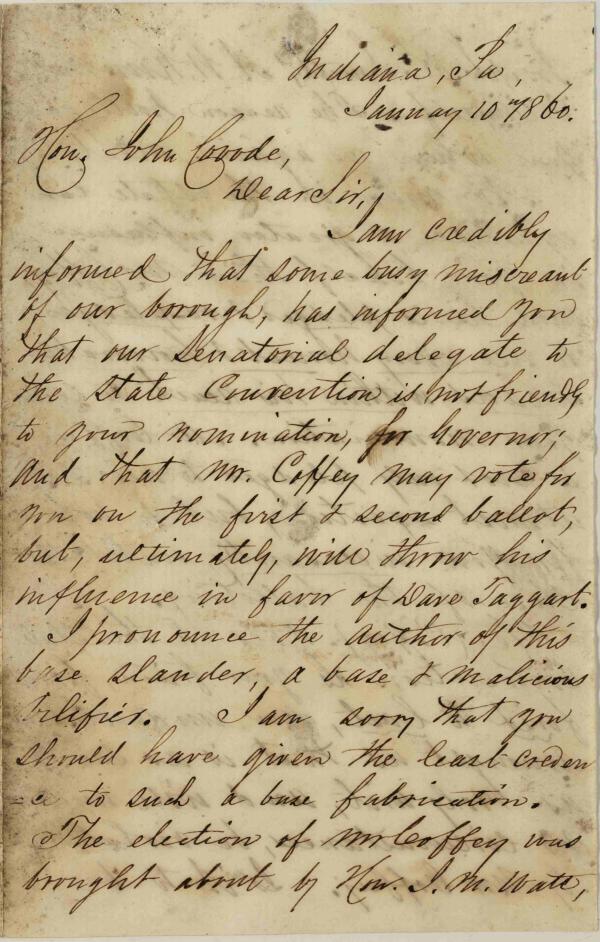 Indiana, Pa,
January 10th 1860.
Hon. John Covode,
Dear Sir,
I am credibly
informed that some busy miscreant
of our borough, has informed you
that our Senatorial delegate to
the State Convention is not friendly
to your nomination, for Governor;
and that Mr. Coffey may vote for
you on the first & second ballot,
but, ultimately, will throw his
influence in favor of Dave Taggart.
I pronounce the author of this
base slander, a base & malicious
vilifier. I am sorry that you
should have given the least creden
=ce to such a base fabrication.
The election of Mr Coffey was
brought about by Hon. I. M. Watt,